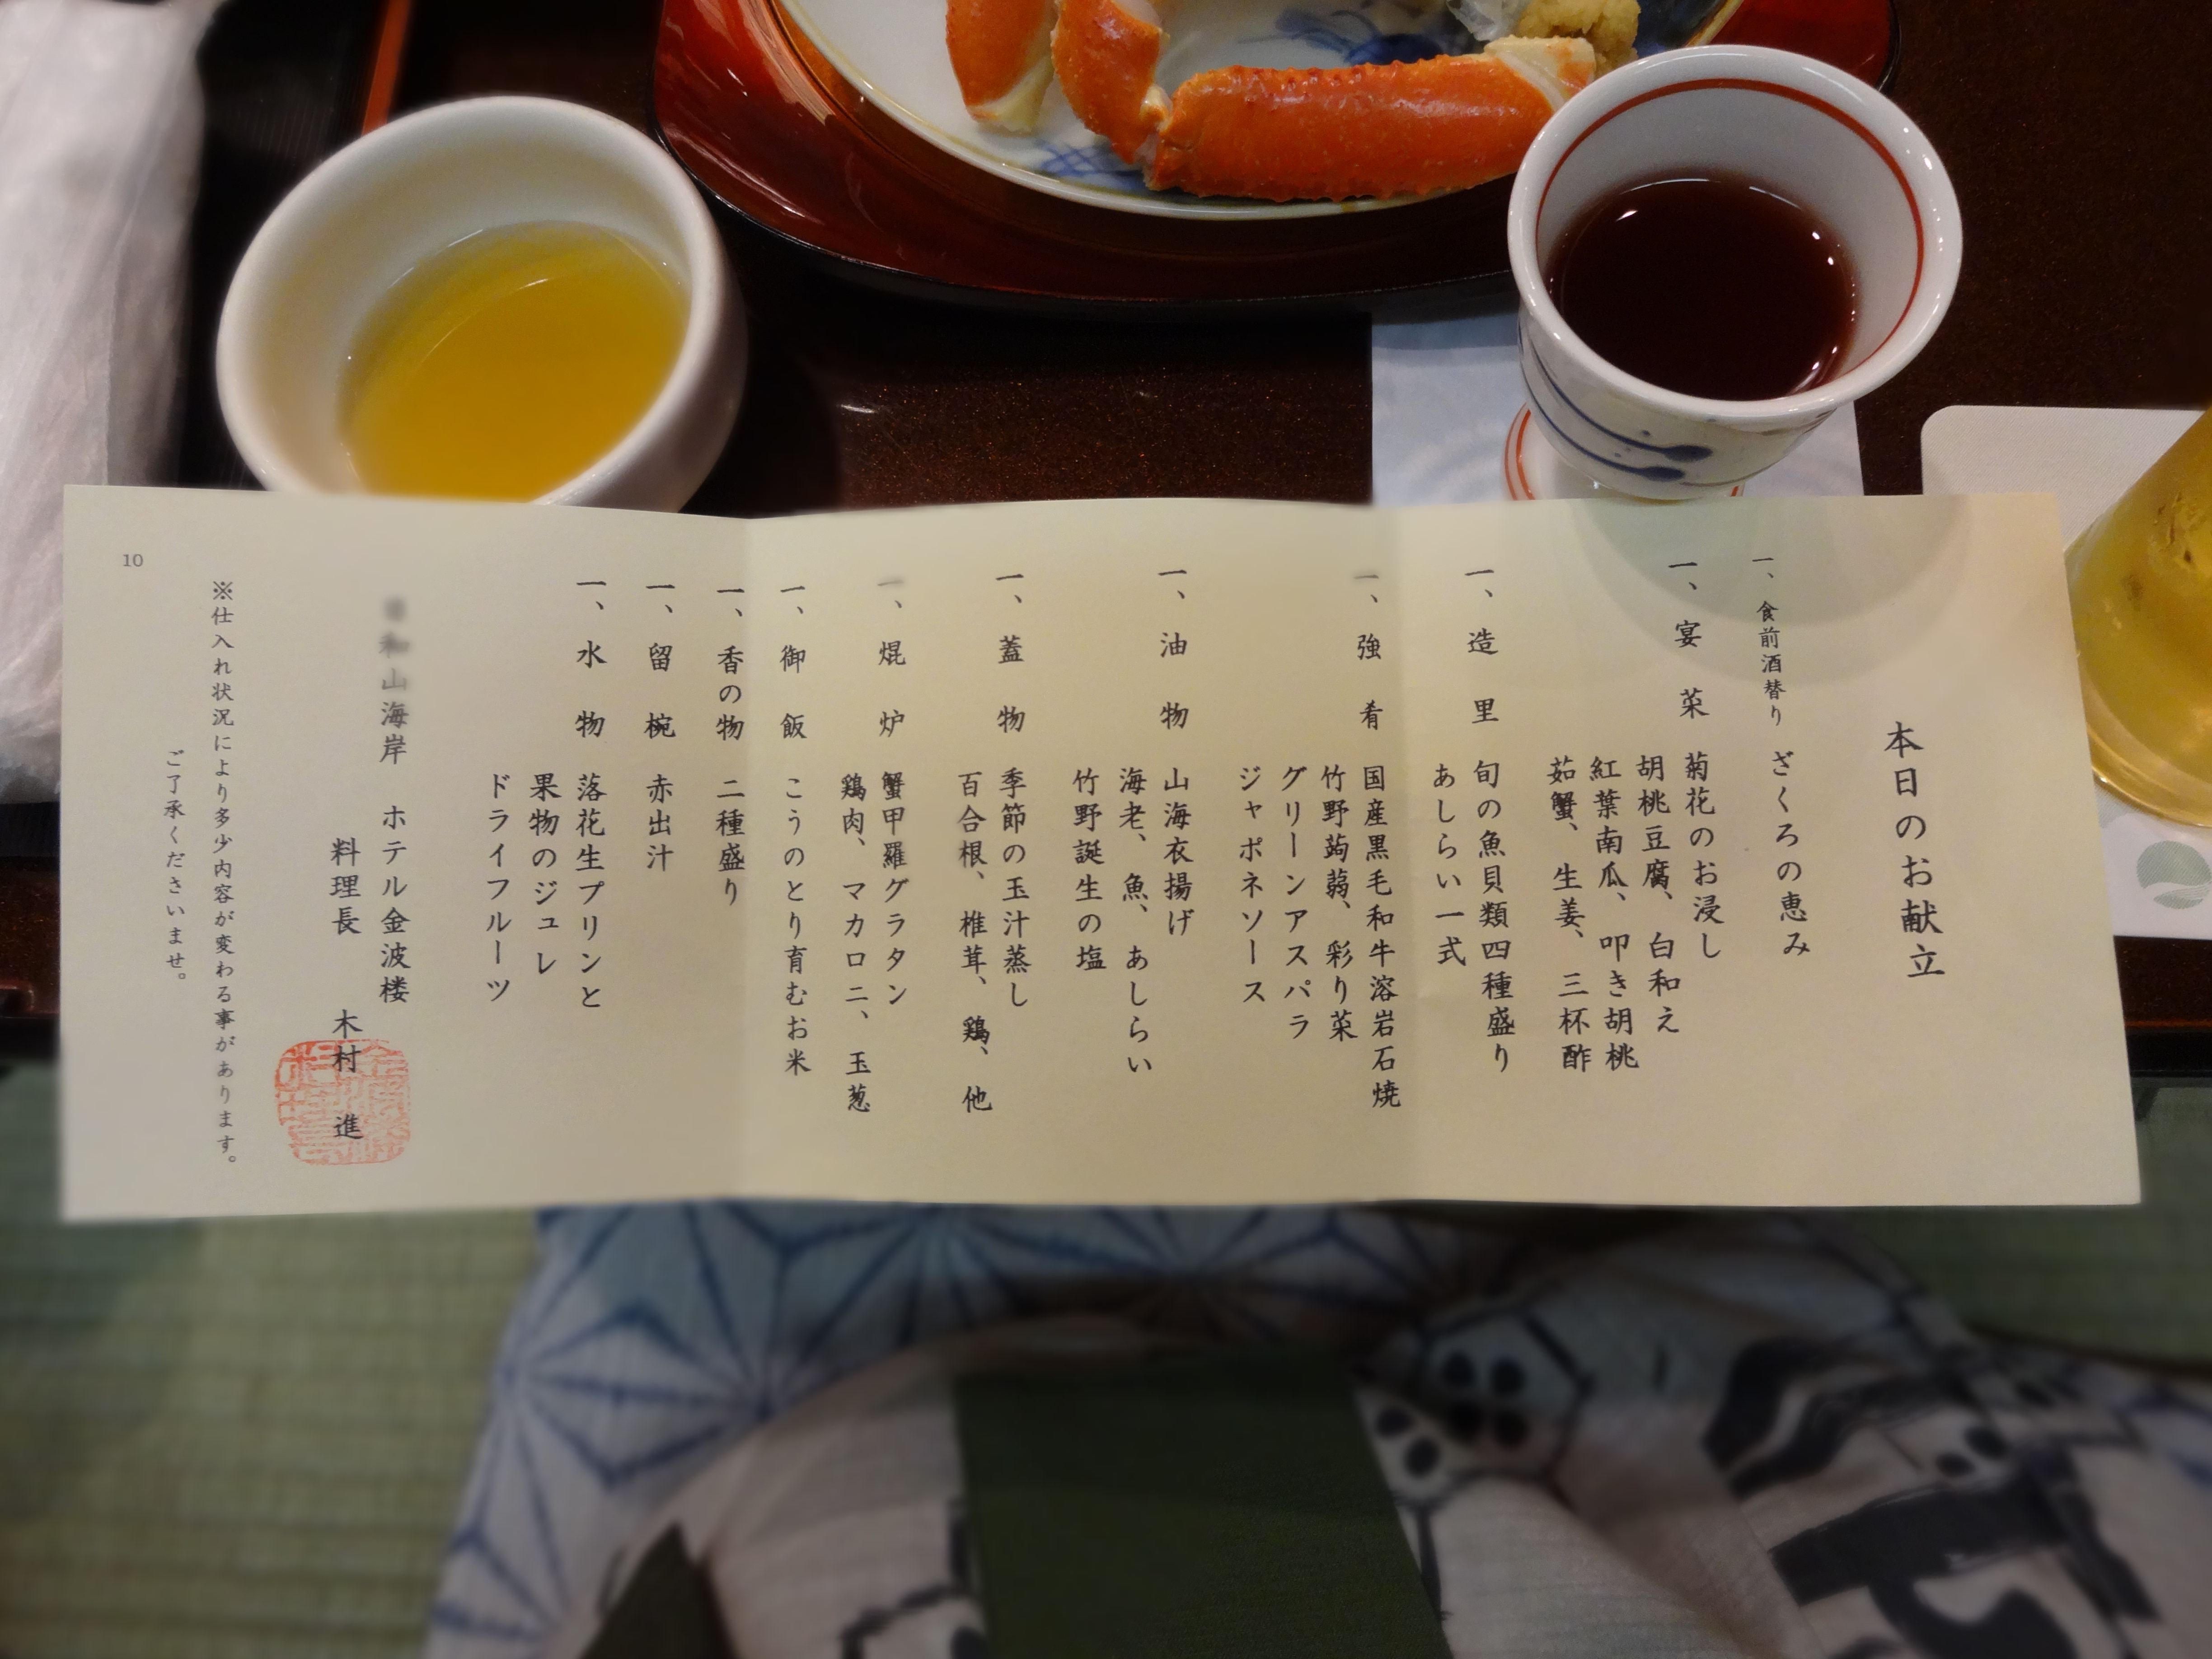 本日のお献立
一、食前酒替り ざくろの恵み
一、宴 菜 菊花のお浸し
胡桃豆腐、白和え
紅葉南瓜、叩き胡桃
茹蟹、生姜、三杯酢
一、造 里 旬の魚貝類四種盛り
あしらい一式
一、強 肴 国産黒毛和牛溶岩石焼
竹野蒟蒻、彩り菜
グリーンアスパラ
ジャポネソース
一、油 物 山海衣揚げ
海老、魚、あしらい
竹野誕生の塩
一、蓋 物 季節の玉汁蒸し
百合根、椎茸、鶏、他
一、焜 炉 蟹甲羅グラタン
鶏肉、マカロニ、玉葱
一、御 飯 こうのとり育むお米
一、香の物 二種盛り
一、留 椀 赤出汁
一、水 物 落花生プリンと
果物のジュレ
ドライフルーツ
和山海岸 ホテル金波楼
料理長 木村 進
※仕入れ状況により多少内容が変わる事があります。
ご了承くださいませ。
10